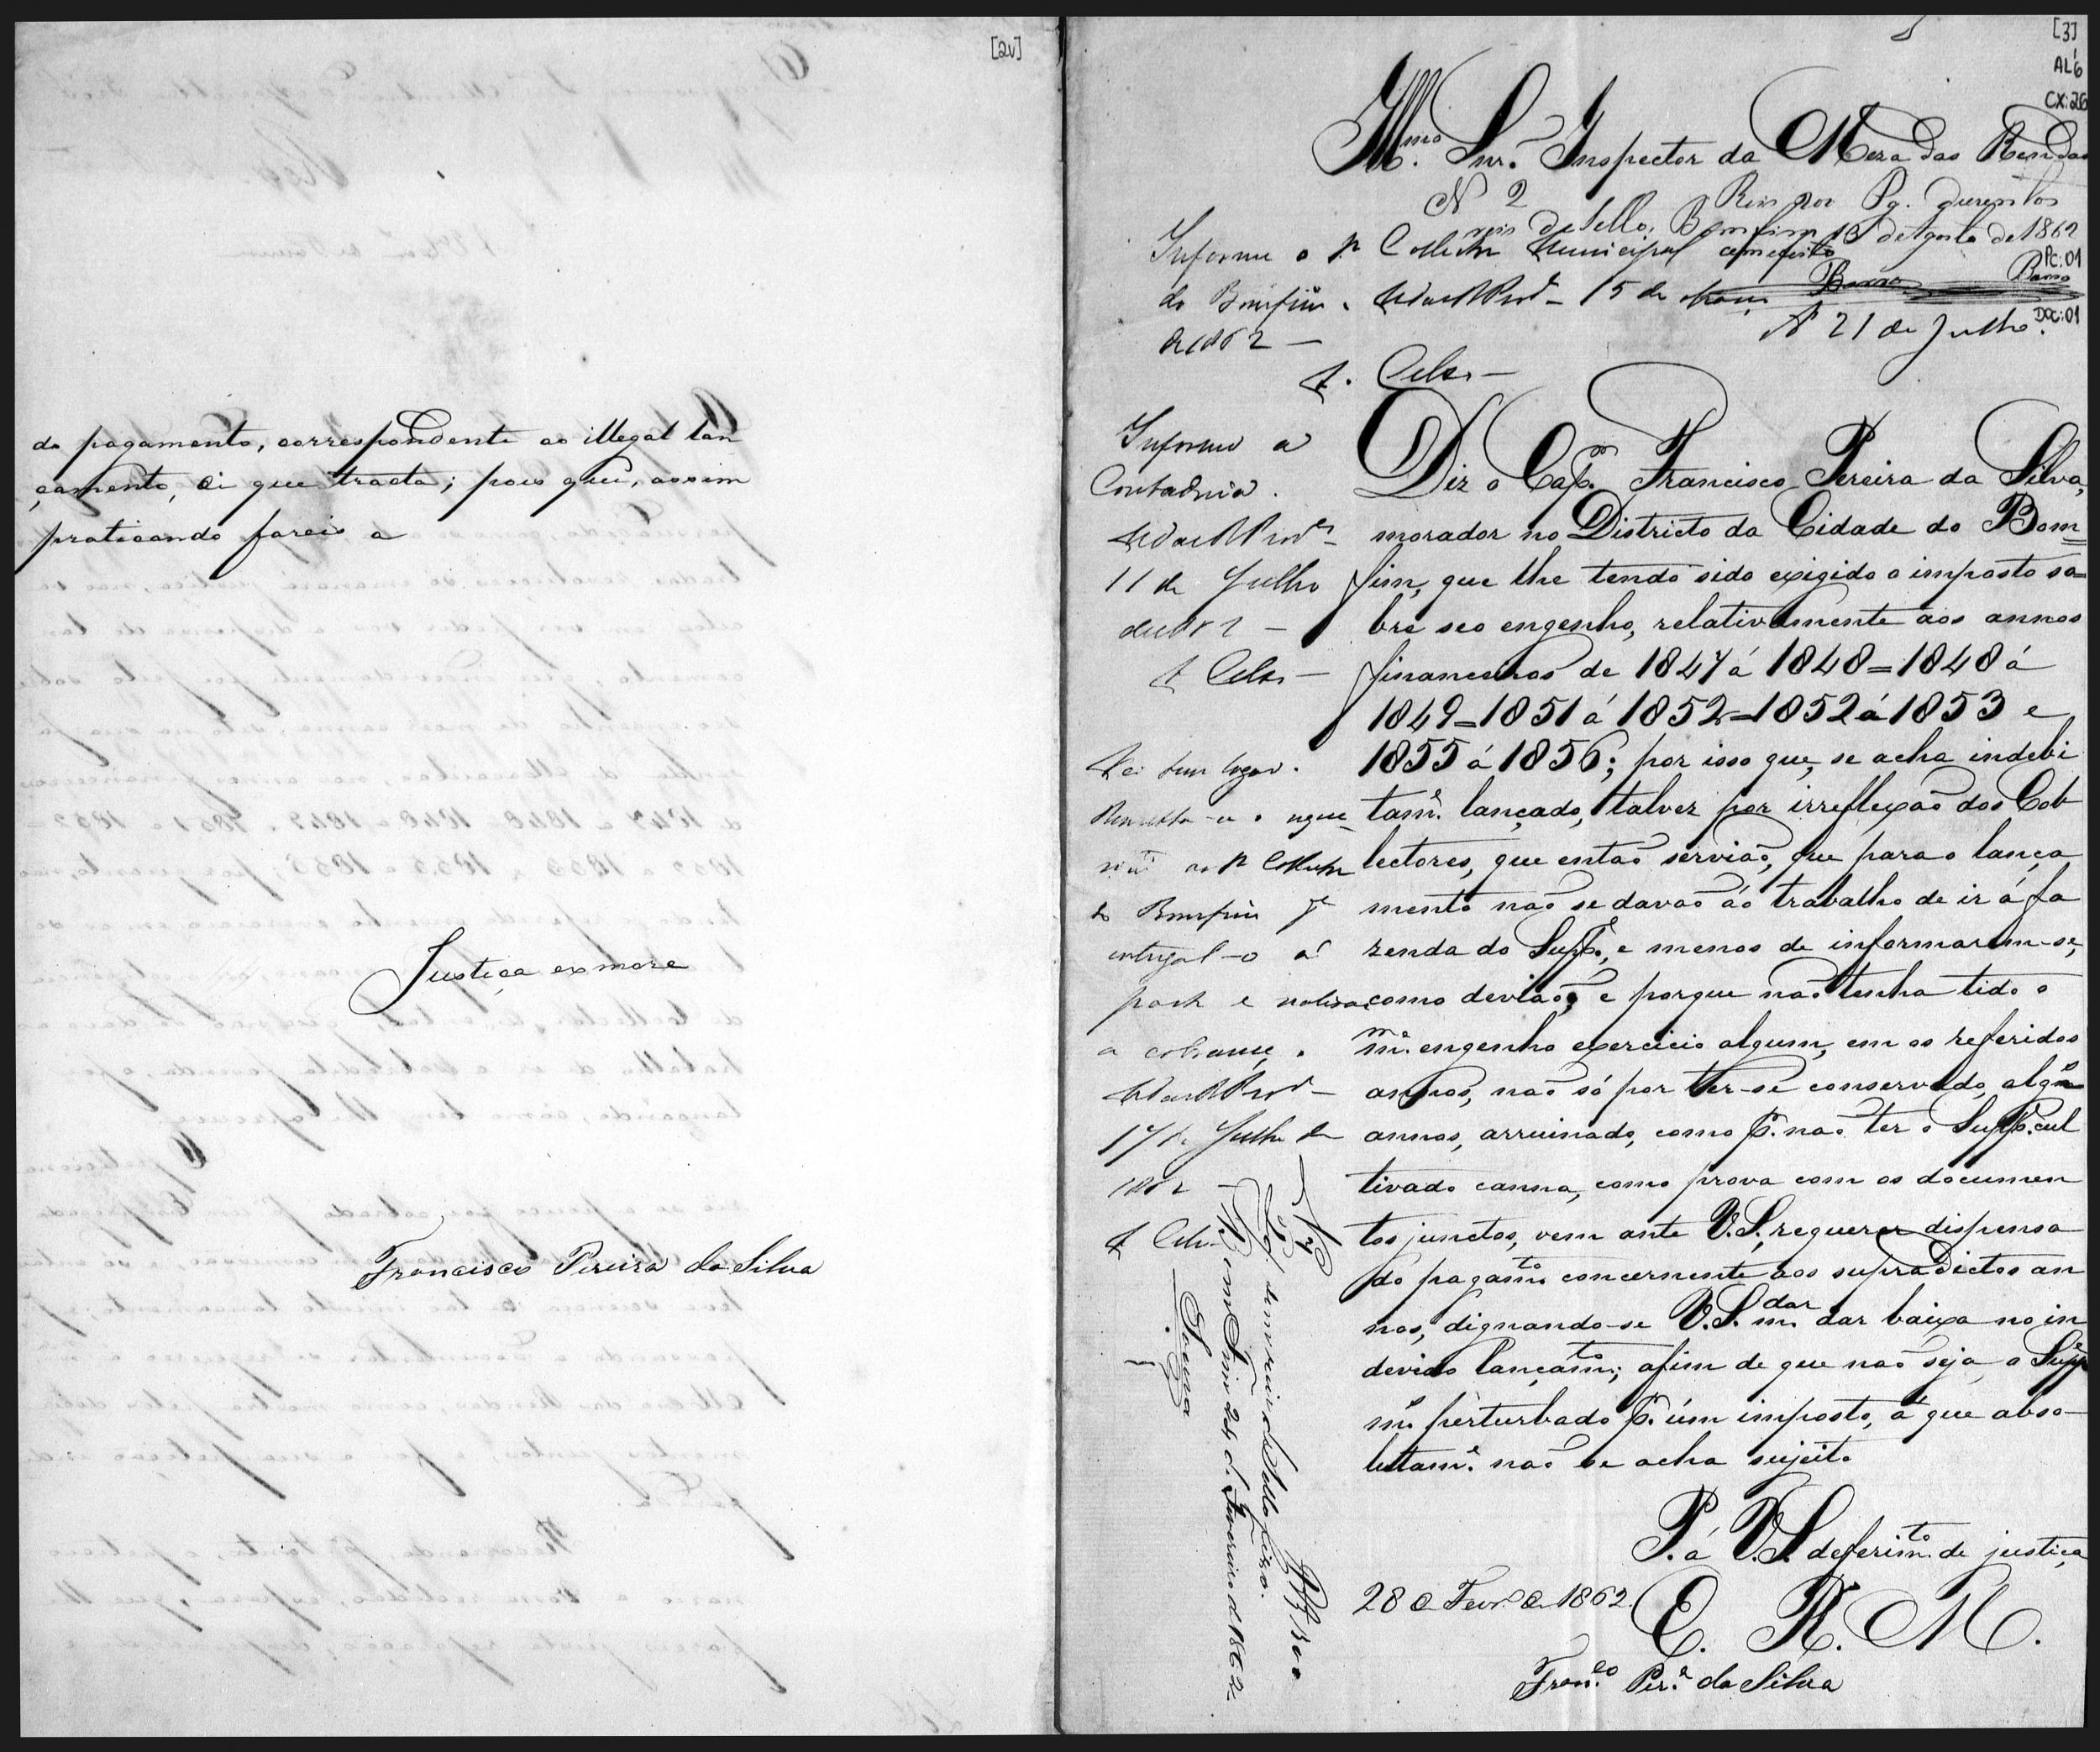 [2v]
do pagamento, correspondente ao illegal lan
çamento, di que tracta; pois que, assim
praticando fareis a
Justiça exmore
Francisco Pereira da Silva
[3]
AL6
CX:26
PC:01
DOC:01
Illmo. Snr. Inspector da Meza das Rendas
N 2
Pg. duzentos
reis de Sello. Bomfim 13 de Agosto de 1862
Informe o Collector Municipal
do Bomfim. 15 de
de 1862 —
Barros
Nº 21 de Julho.
Celso —
Informe a
Contadoria.
11 de Julho
de 1862 —
Celso —
Diz o Capm. Francisco Pereira da Silva,
morador no Districto da Cidade do Bom=
fim, que lhe tendo sido exigido o imposto so=
bre seo engenho, relativamente aos annos
financeiros de 1847 á 1848=1848 á
1849=1851 á 1852=1852 á 1853 e
1855 á 1856; por isso que, se acha indebi
tame. lançado, talvez por irreflexaõ dos Col-
lectores, que entaõ serviaõ, que para o lança
mento naõ se davaõ áo trabalho de ir á fa
zenda do Suppe., e menos de informarem-se,
como deviaõ; e porque naõ tenha tido o
mme. engenho exercicio algum, em os referidos
annos, naõ só por ter-se conservado, algũs
annos, arruinado, como pr. naõ ter o Suppe. cul
tivado canna, como prova com os documen
tos junctos, vem ante V.S. requerer dispensa
do pagamto. concernente aos supradictos an
nos, dignando-se V.S. mdar dar baixa no in
devido lançamto.; afim de que naõ seja o Suppe
me. perturbado pr. úm imposto, á que abso-
lutame. naõ se acha sujeito
P. a V.S. deferimto. de justiça
E. R. M.
28 de Fevro. de 1862.
Franco. Pera. da Silva
Remetta-se o reque
rimto. ao Collector
do Bomfim pa
entregal-o á
parte e realisar
a cobrança.
17 de Julho de
1862 —
Celso
Nº 1
de Sello fixo.
Bomfim 24 de Fevereiro de 1862.
Souza